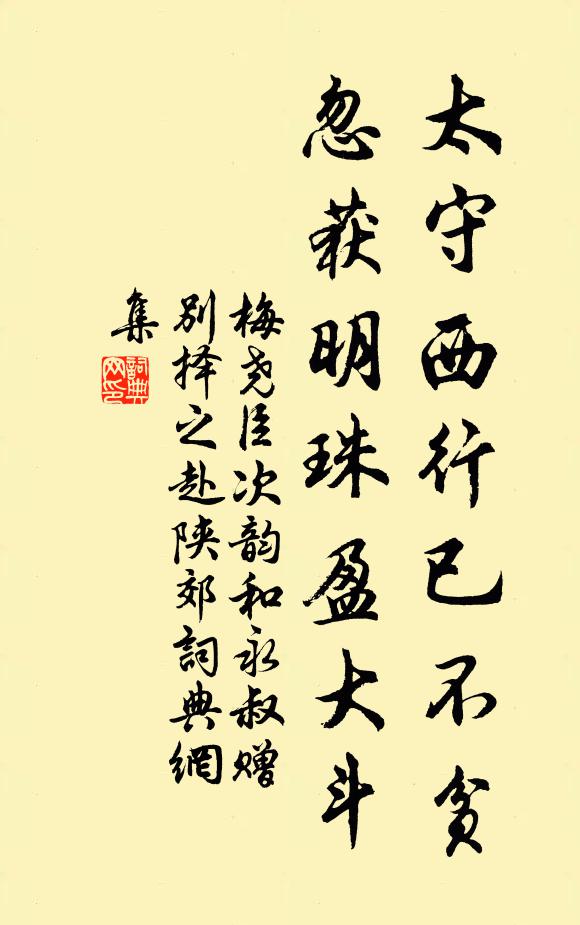 太守西行已不贫
忽获明珠盈大斗
梅尧臣次韵和永叔赠
别择之赴陕郊詞典網
集
詞典网印